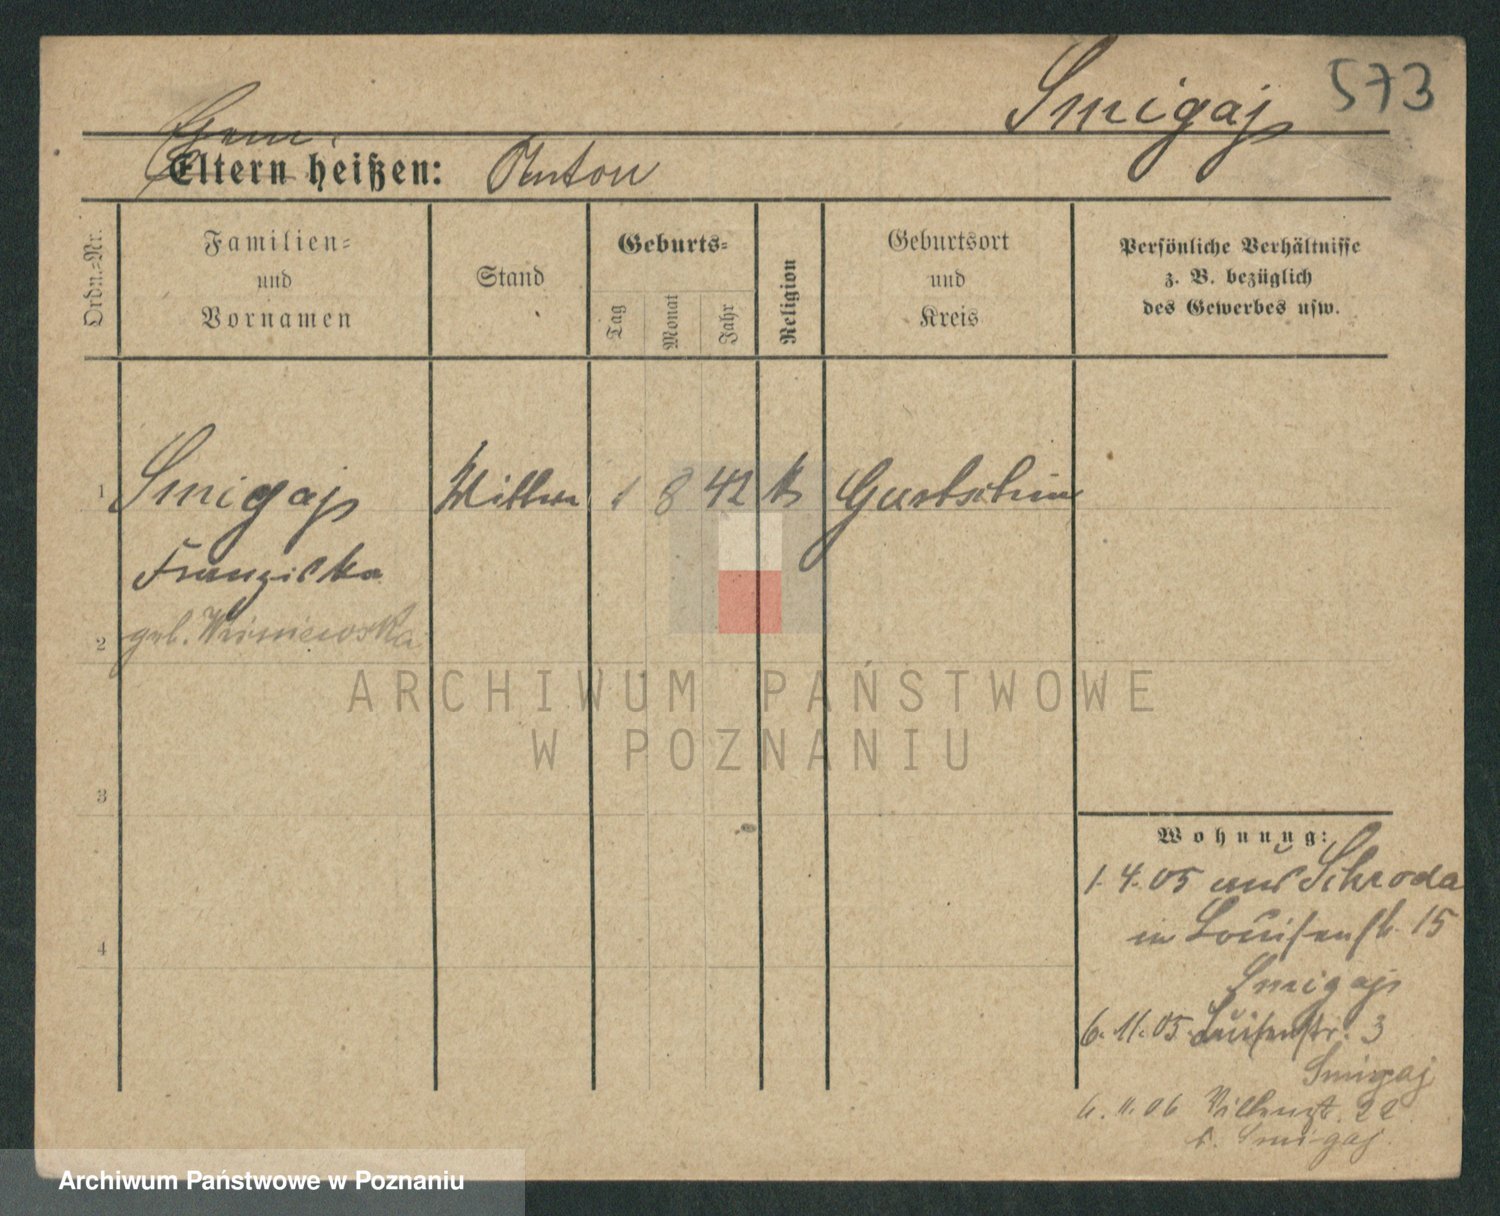 Smigaj 573
Ehem.
Eltern heißen: Anton
Ordn.-Nr.
Familien-
und
Vornamen
Stand
Geburts-
Tag
Monat
Jahr
Religion
Geburtsort
und
Kreis
Persönliche Verhältnisse
z. B. bezüglich
des Gewerbes usw.
1 Smigaj Witwe 1 8 42 k
Franziska
2 geb. Wisniewska
3
4
Wohnung:
1.4.05 aus Schroda
in Louisenstr. 15
Smigaj
6.11.05 Luisenstr. 3
Smigaj
6.11.06 22
b. Smigaj
ARCHIWUM PAŃSTWOWE
W POZNANIU
Archiwum Państwowe w Poznaniu